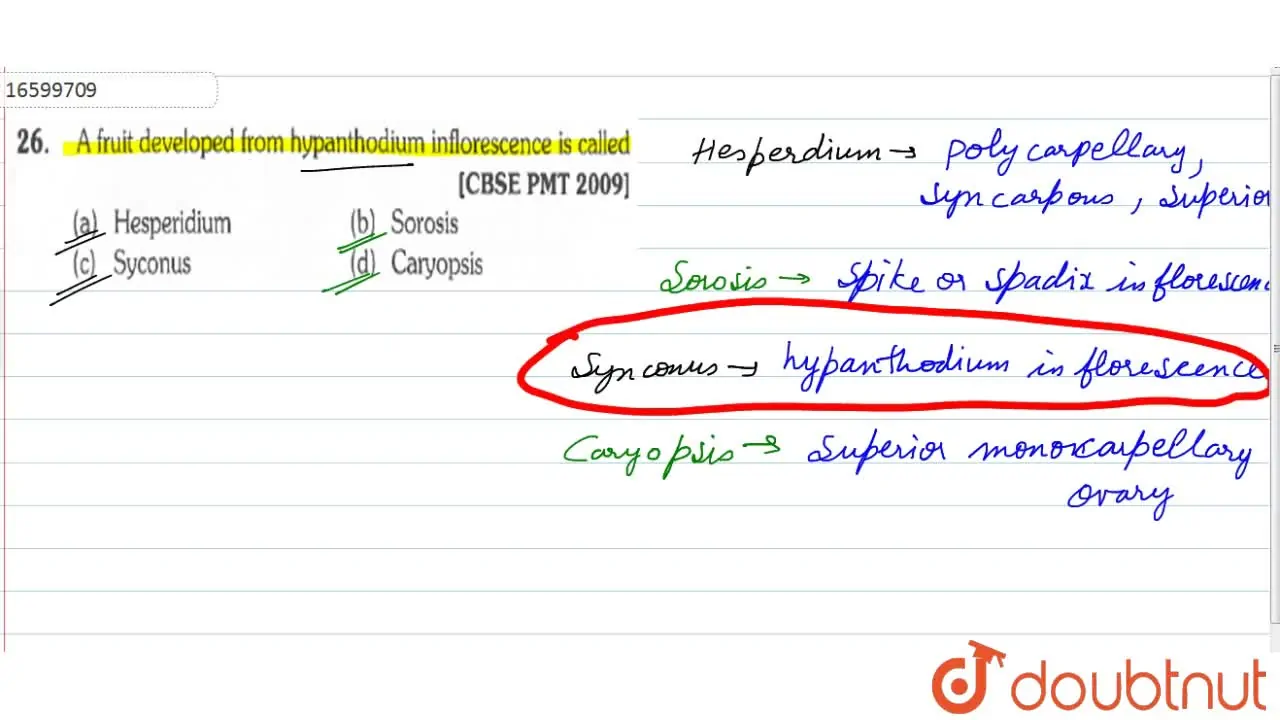 16599709
26. A fruit developed from hypanthodium inflorescence is called
[CBSE PMT 2009]
(a) Hesperidium (b) Sorosis
(c) Syconus (d) Caryopsis
Hesperdium → polycarpellary,
Syncarpous, Superior
Sorosis → Spike or spadix inflorescenc
Synconus → hypanthodium inflorescence
Caryopsis → Superior monocarpellary
ovary
doubtnut